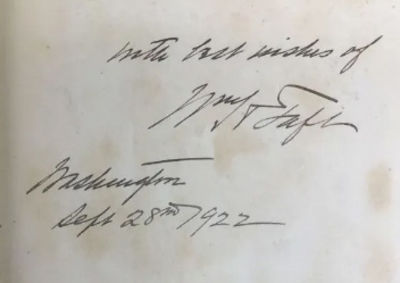 with best wishes of
Wm H Taft
Washington
Sept 28nd 1922